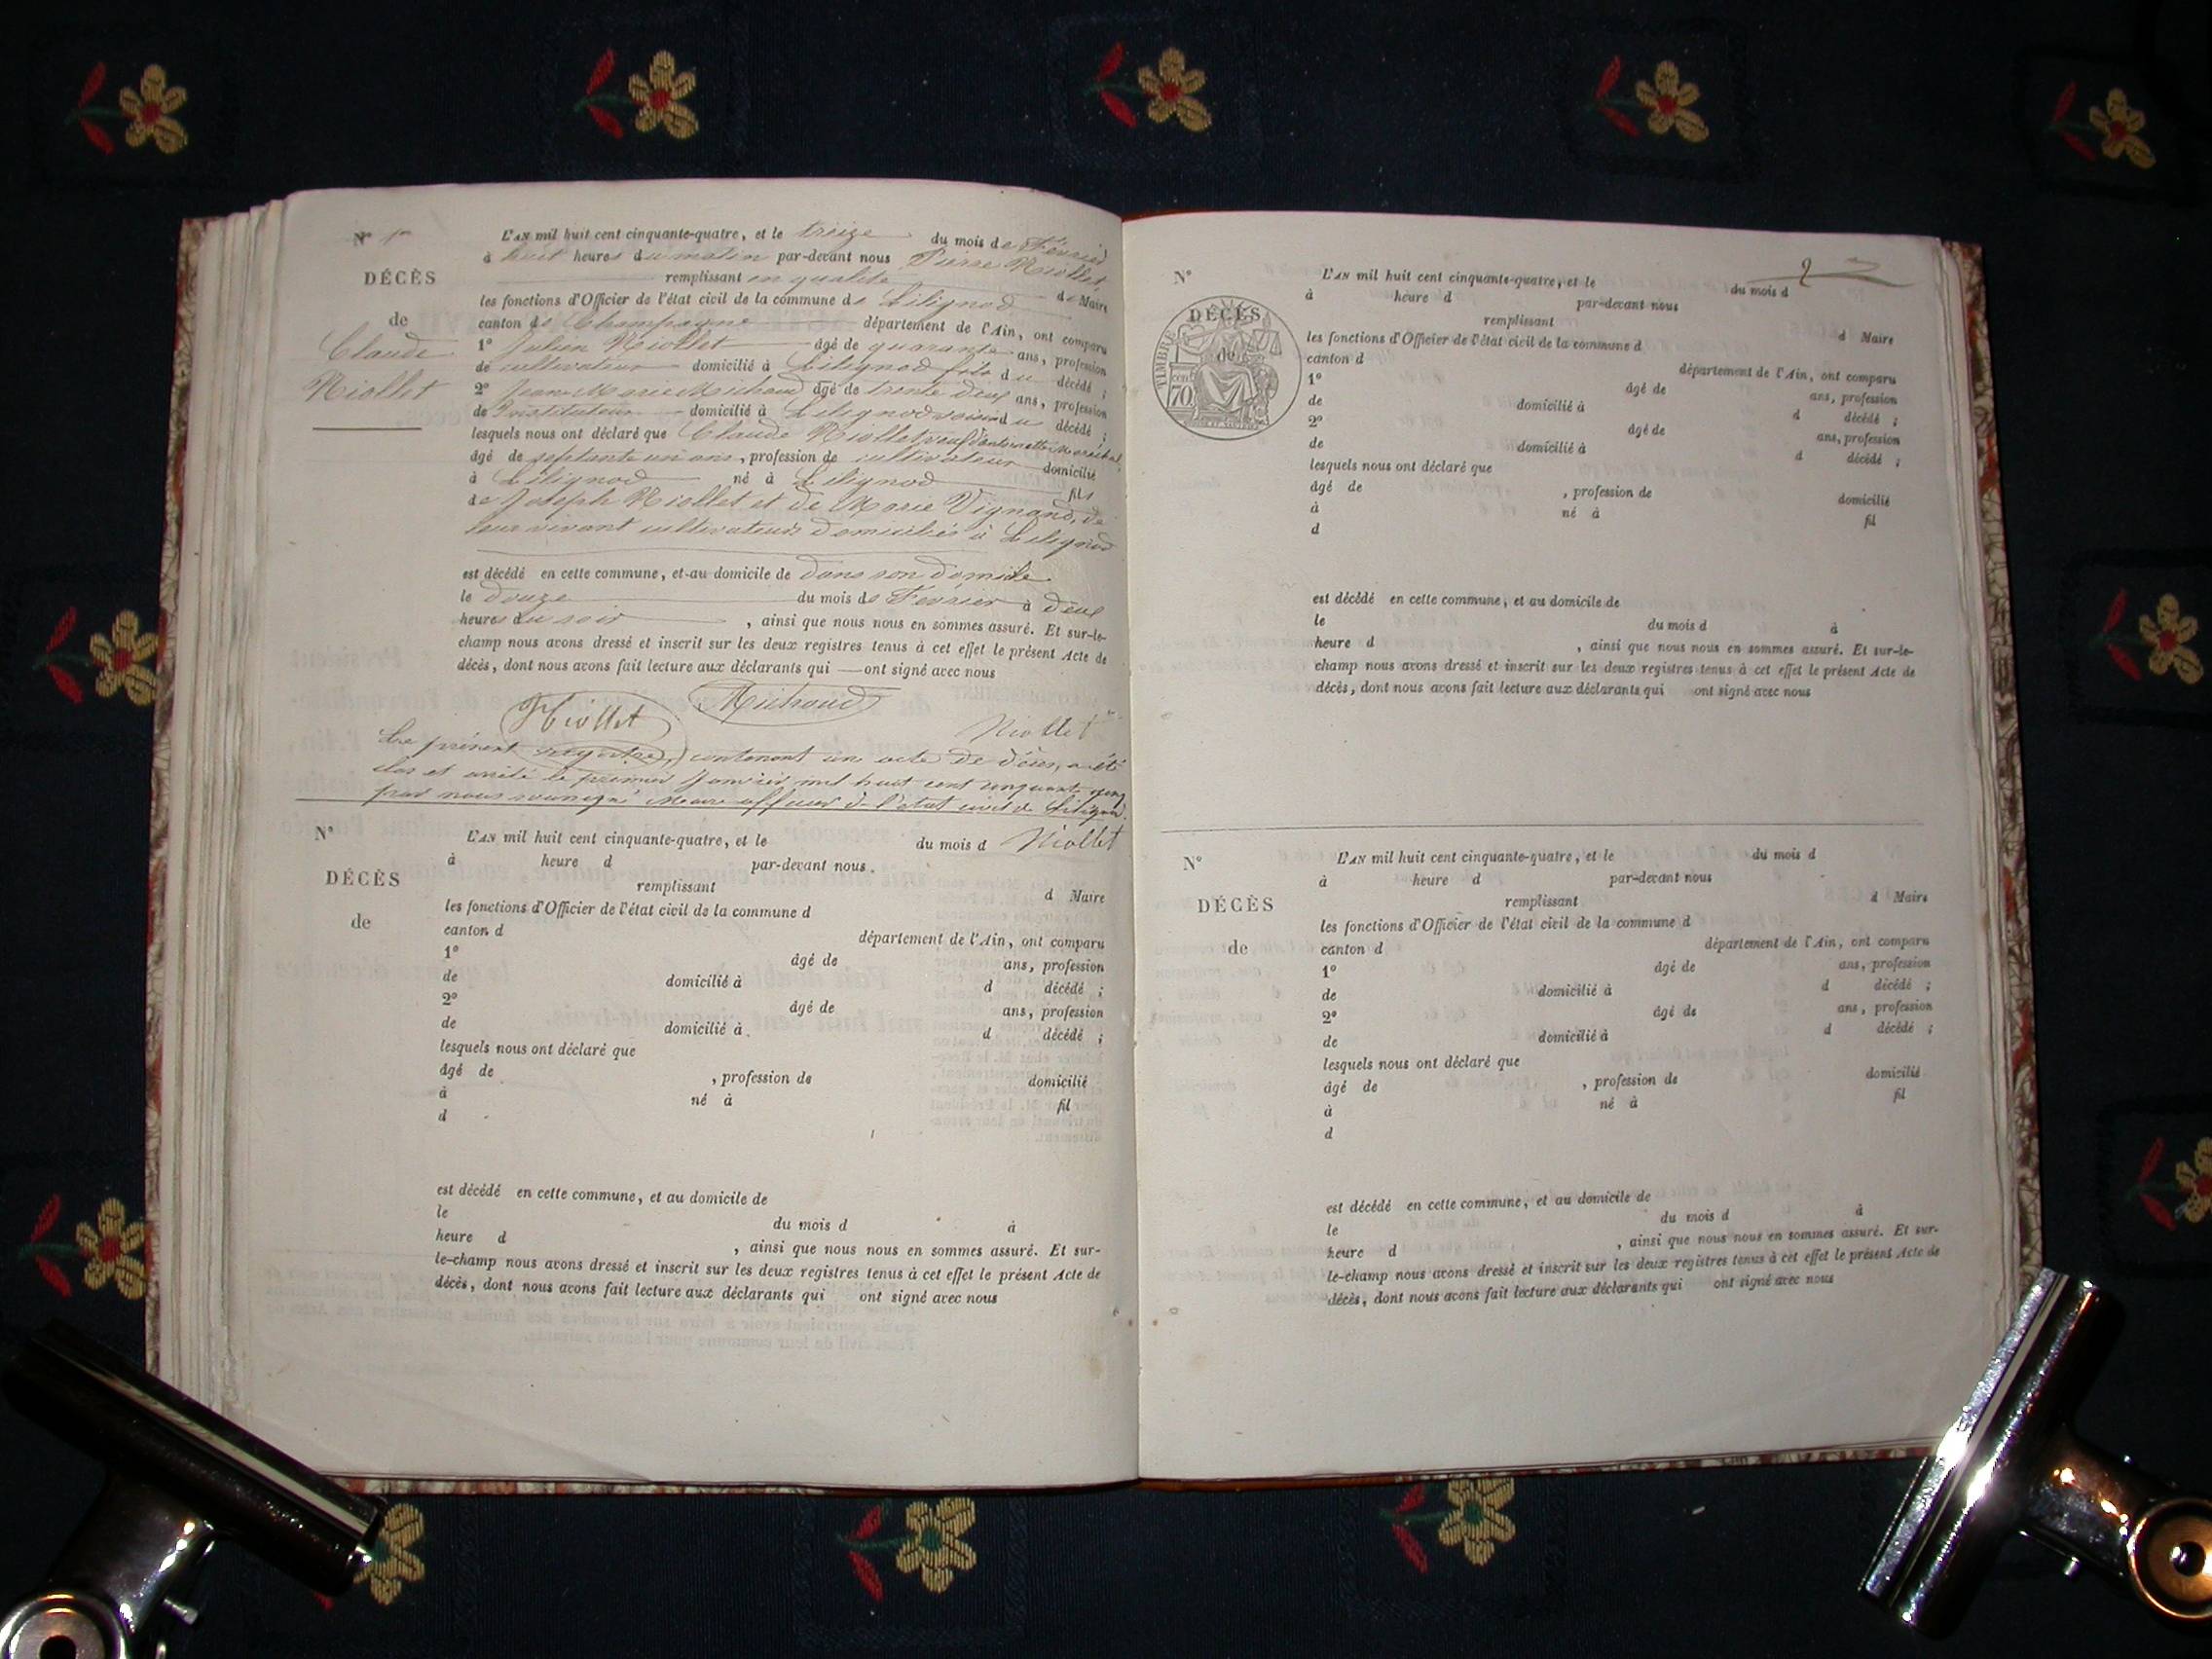 N° 1er
L'AN mil huit cent cinquante-quatre, et le treize du mois de Février
à huit heures du matin par-devant nous Pierre Niollet
DÉCÈS
remplissant en qualité de Maire
les fonctions d'Officier de l'état civil de la commune de Lilignod
de
canton de Champagne département de l'Ain, ont comparu
Claude
1° Julien Niollet âgé de quarante ans, profession
de cultivateur domicilié à Lilignod fils du décédé ;
Niollet
2° Jean Marie Michaud âgé de trente deux ans, profession
de Instituteur domicilié à Lilignod voisin du décédé ;
lesquels nous ont déclaré que Claude Niollet veuf d'Antoinette Maréchal
âgé de septante un ans, profession de cultivateur domicilié
à Lilignod né à Lilignod fils
de Joseph Niollet et de Marie Vignand, de
leur vivant cultivateurs domiciliés à Lilignod
est décédé en cette commune, et au domicile de dans son domicile
le douze du mois de Février à deux
heures du soir , ainsi que nous nous en sommes assuré. Et sur-le-
champ nous avons dressé et inscrit sur les deux registres tenus à cet effet le présent Acte de
décès, dont nous avons fait lecture aux déclarants qui ont signé avec nous
Niollet Michaud Niollet
Le présent registre, contenant un acte de décès, a été
clos et arrêté le premier Janvier mil huit cent cinquante cinq
par nous soussigné Maire officier de l'état civil de Lilignod.
Niollet
N°
L'AN mil huit cent cinquante-quatre, et le du mois d
à heure d par-devant nous
DÉCÈS
remplissant d Maire
les fonctions d'Officier de l'état civil de la commune d
de
canton d département de l'Ain, ont comparu
1° âgé de ans, profession
de domicilié à d décédé ;
2° âgé de ans, profession
de domicilié à d décédé ;
lesquels nous ont déclaré que
âgé de , profession de domicilié
à né à fil
d
est décédé en cette commune, et au domicile de
le du mois d à
heure d , ainsi que nous nous en sommes assuré. Et sur-
le-champ nous avons dressé et inscrit sur les deux registres tenus à cet effet le présent Acte de
décès, dont nous avons fait lecture aux déclarants qui ont signé avec nous
2
N°
L'AN mil huit cent cinquante-quatre, et le du mois d
à heure d par-devant nous
DÉCÈS
remplissant d Maire
TIMBRE
70 cen
les fonctions d'Officier de l'état civil de la commune d
de
canton d département de l'Ain, ont comparu
1° âgé de ans, profession
de domicilié à d décédé ;
2° âgé de ans, profession
de domicilié à d décédé ;
lesquels nous ont déclaré que
âgé de , profession de domicilié
à né à fil
d
est décédé en cette commune, et au domicile de
le du mois d à
heure d , ainsi que nous nous en sommes assuré. Et sur-le-
champ nous avons dressé et inscrit sur les deux registres tenus à cet effet le présent Acte de
décès, dont nous avons fait lecture aux déclarants qui ont signé avec nous
N°
L'AN mil huit cent cinquante-quatre, et le du mois d
à heure d par-devant nous
DÉCÈS
remplissant d Maire
les fonctions d'Officier de l'état civil de la commune d
de
canton d département de l'Ain, ont comparu
1° âgé de ans, profession
de domicilié à d décédé ;
2° âgé de ans, profession
de domicilié à d décédé ;
lesquels nous ont déclaré que
âgé de , profession de domicilié
à né à fil
d
est décédé en cette commune, et au domicile de
le du mois d à
heure d , ainsi que nous nous en sommes assuré. Et sur-
le-champ nous avons dressé et inscrit sur les deux registres tenus à cet effet le présent Acte de
décès, dont nous avons fait lecture aux déclarants qui ont signé avec nous